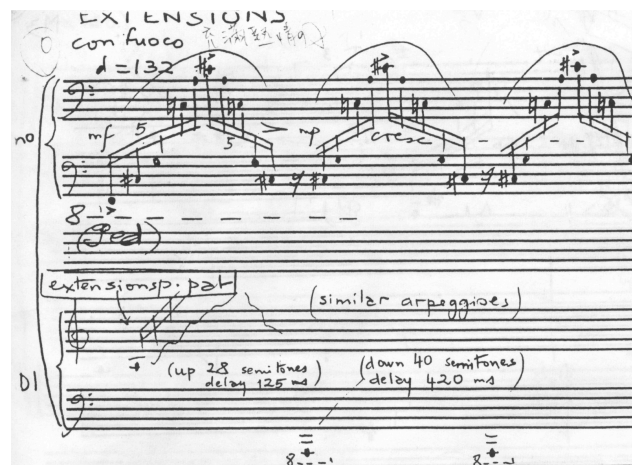 EXTENSIONS
con fuoco 充滿熱情的
d = 132
no
mf 5 5 > mp cresc
8
(Ped)
extensionsp. pat
(similar arpeggioes)
(up 28 semitones
delay 125 ms)
(down 40 semitones
delay 420 ms)
DI
8 8